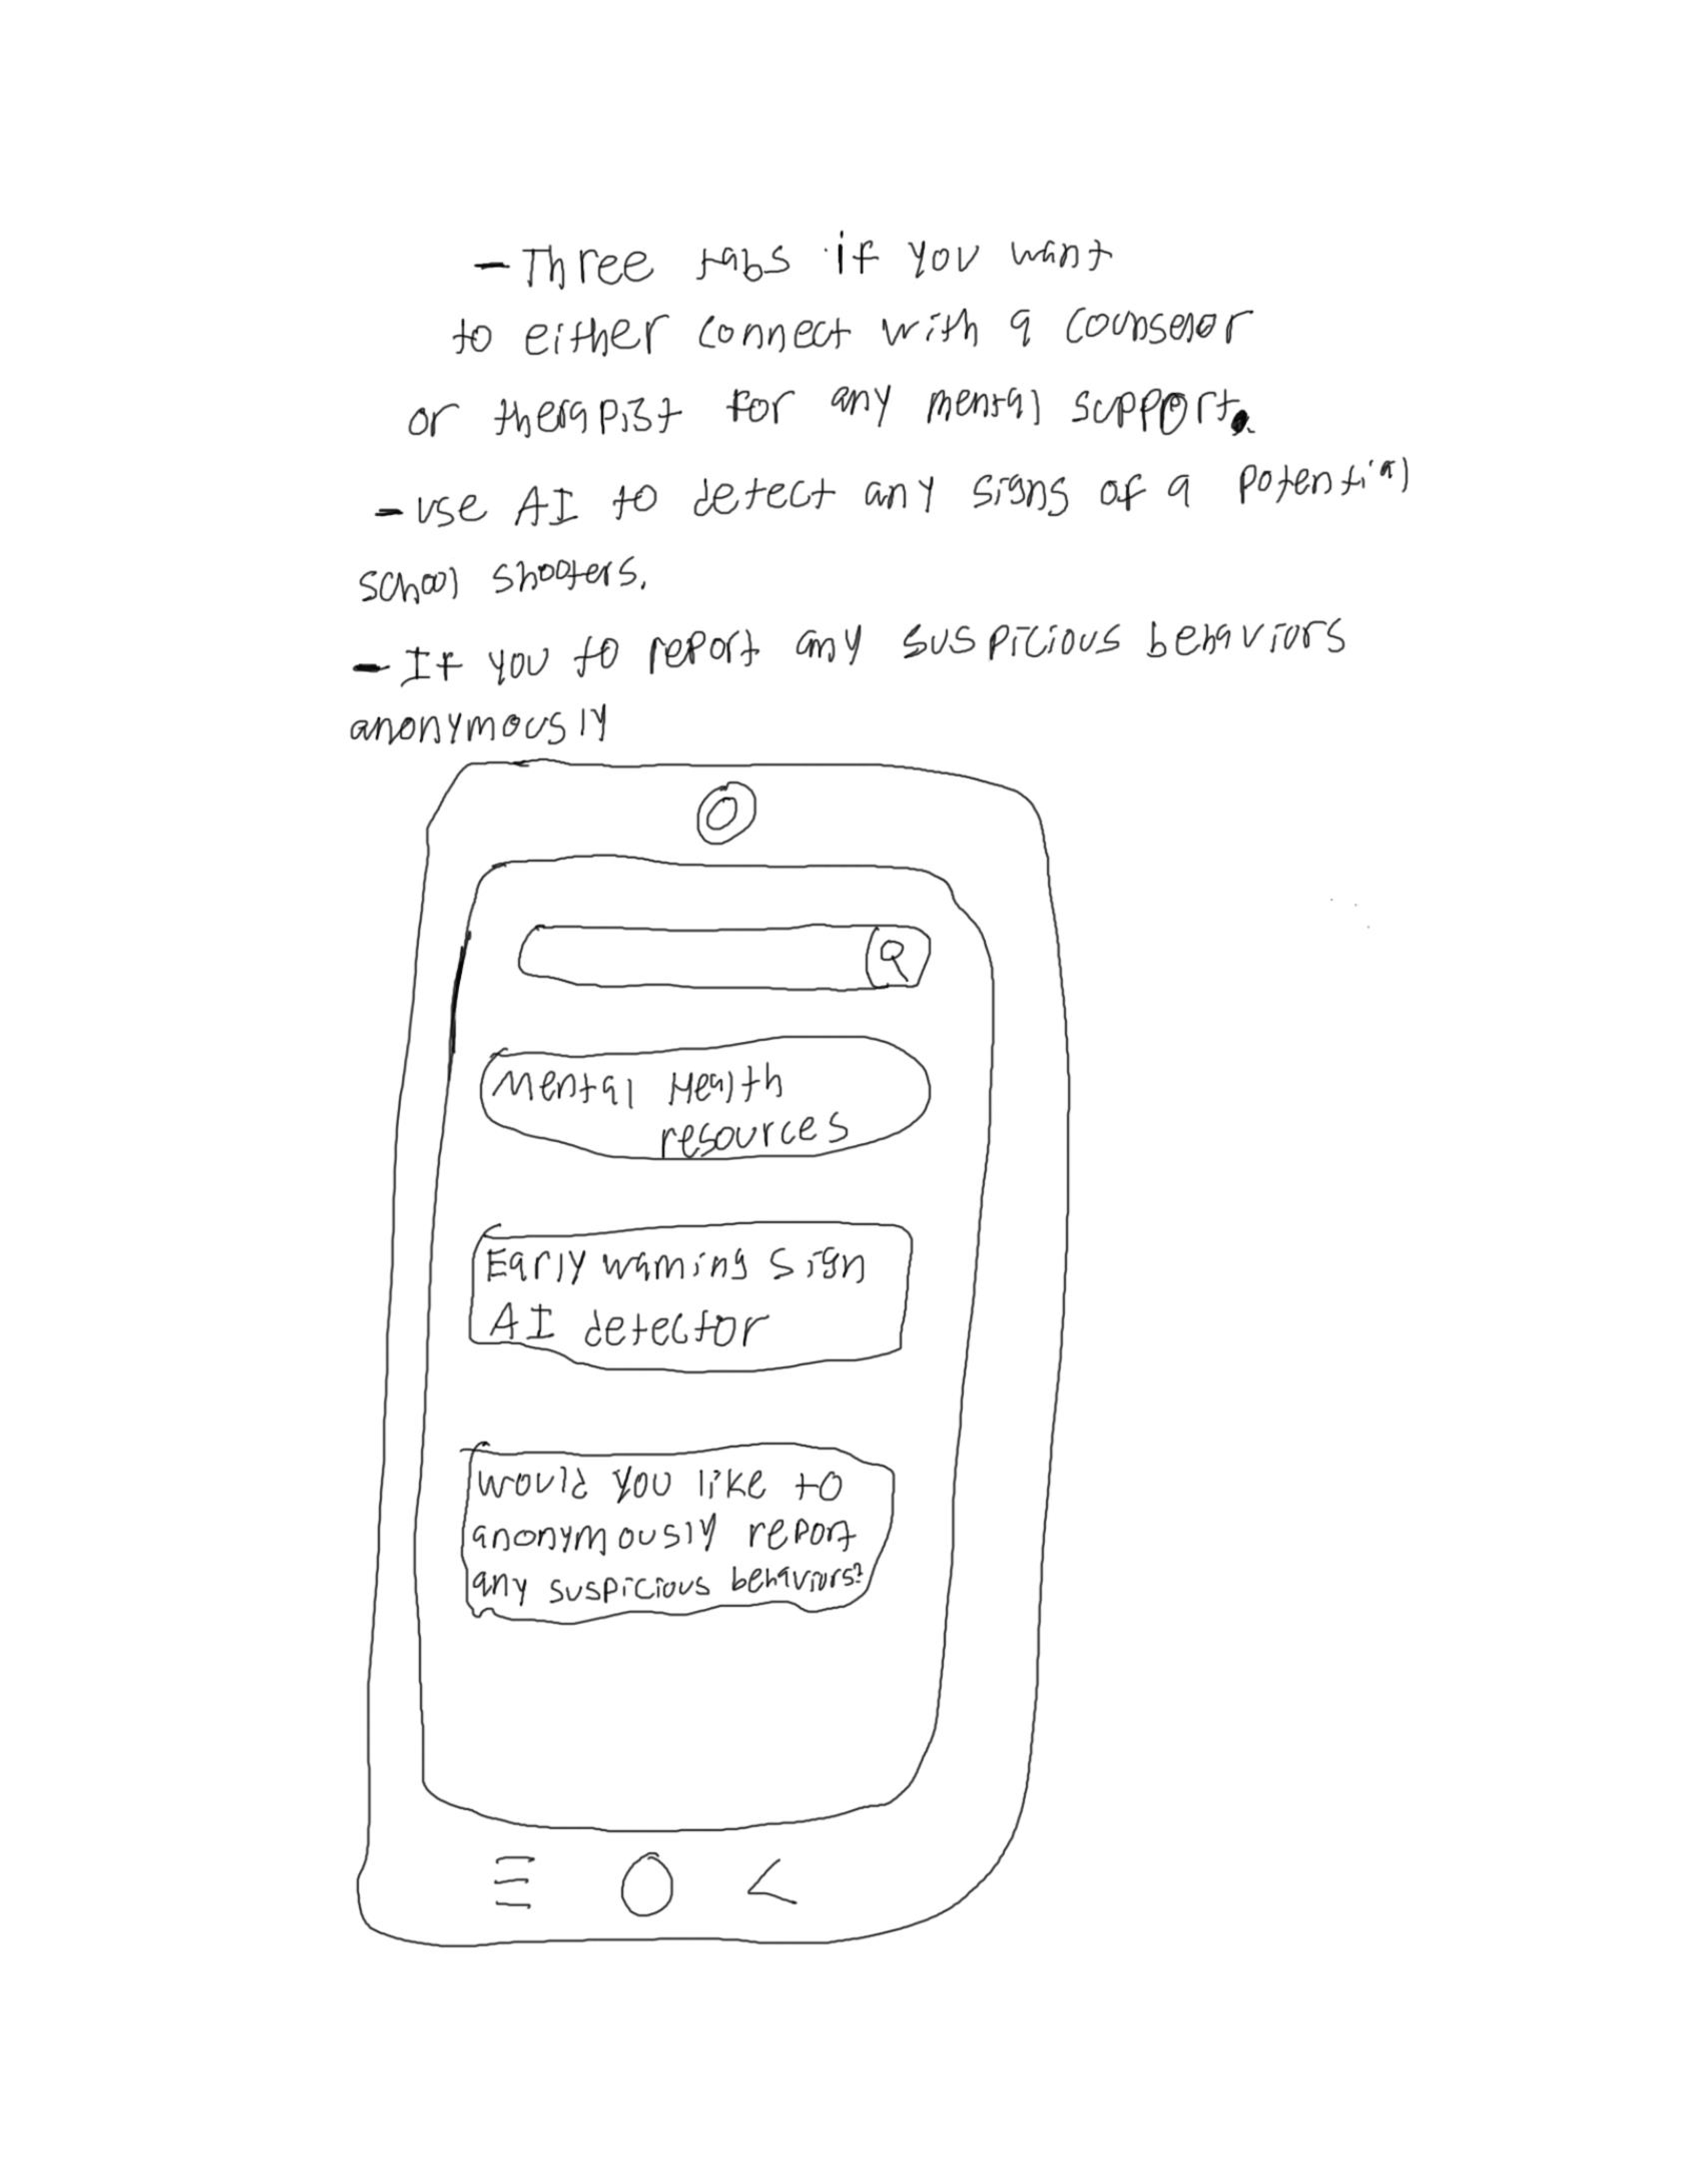 - Three tabs if you want
to either connect with a counselor
or therapist for any mental support.
- use AI to detect any signs of a potential
school shooters.
- If you to report any suspicious behaviors
anonymously
Mental Health
resources
Early warning sign
AI detector
would you like to
anonymously report
any suspicious behaviors?